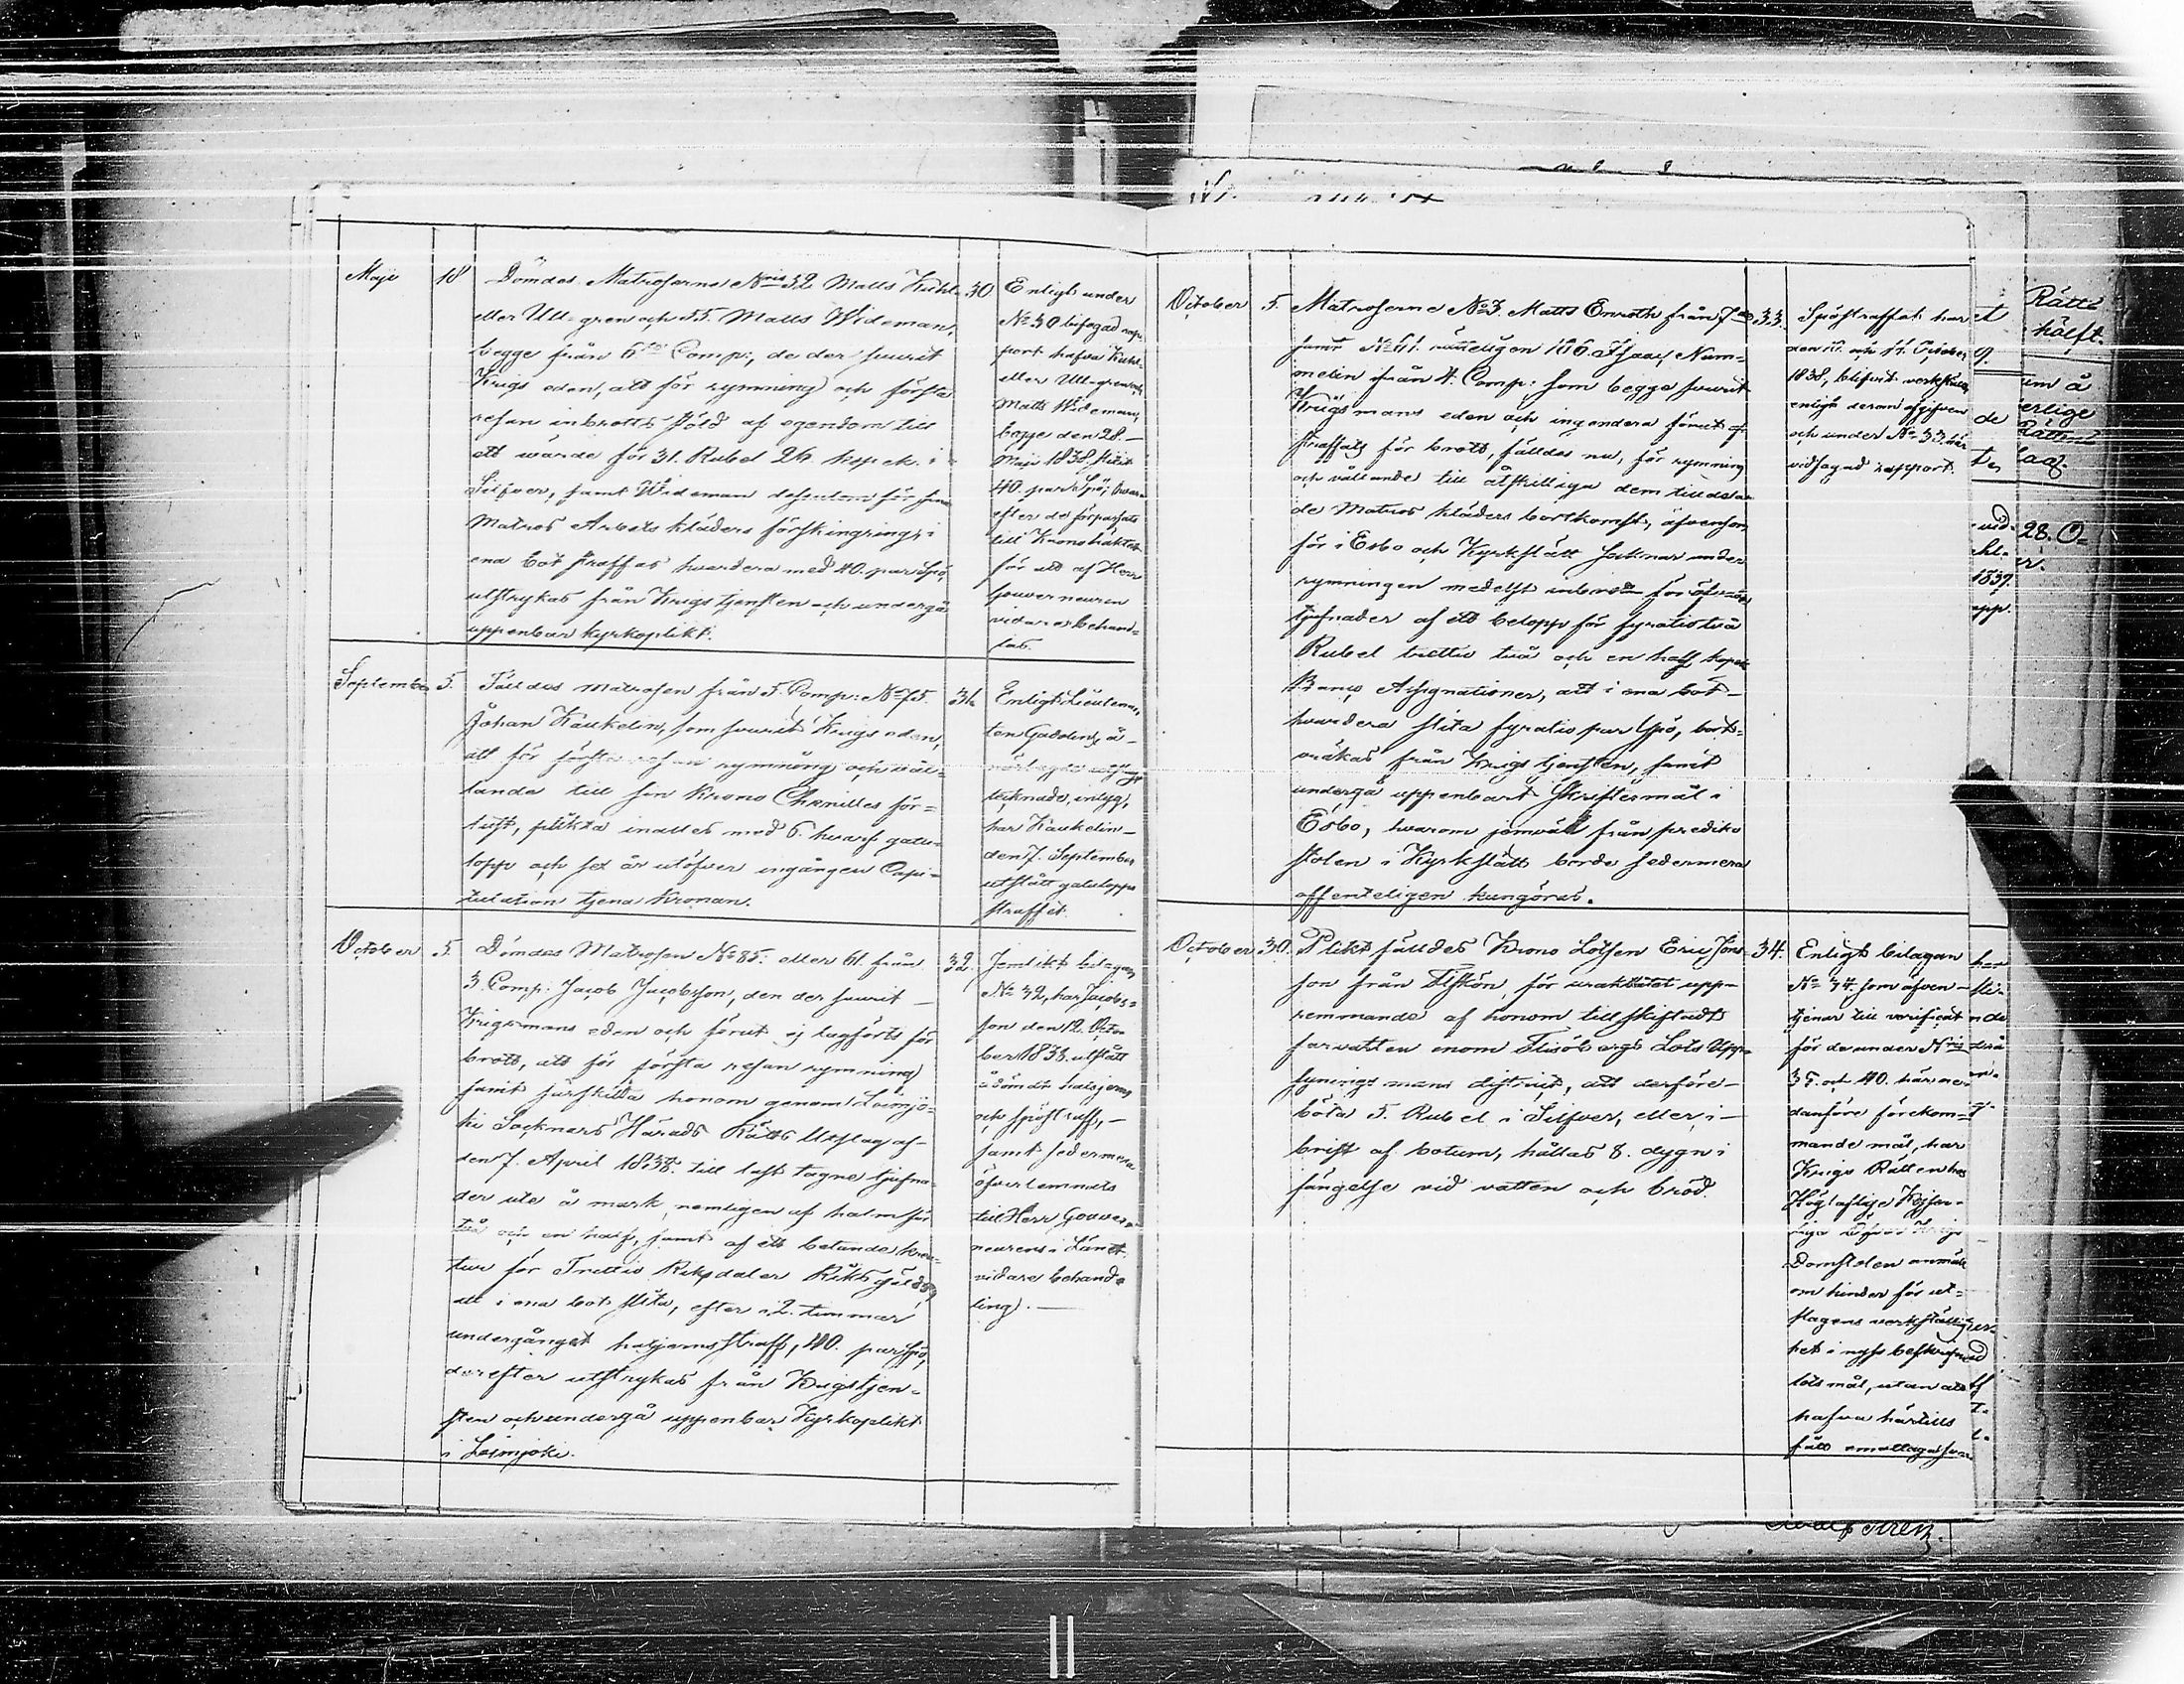 Maji 18 Dömdes Matroserne N:ris 32 Matts Kuhl- 30
eller Ullgren och 55. Matts Wideman,
begge från 6:te Comp:, de der svurit
Krigs eden, att för rymning och första
resan inbrotts stöld af egendom till
ett wärde för 31. Rubel 26. kopek. i
Silfver, samt Wideman dessutom för sina
Matros Arbets kläders förskingring, i
ena bot straffas hvardera med 40. par Spö,
utstrykas från Krigstjensten och undergå
uppenbar kyrkoplikt.
Enligt under
N:o 30 bifogad rap-
port hafva Kuhl-
eller Ullgren och
Matts Wideman,
begge den 28.
Maji 1838, slitit
40. par Spö, hvar-
efter de förpassats
till Kronohäktet
för att af Herr
Gouverneuren
vidare behand-
las.
September 5. Fälldes matrosen från 5. Comp: N:o 75. 31.
Johan Kaukelin, som svurit Krigs eden,
att för första resan rymning och vål-
lande till sin Krono Chenilles för-
lust, plikta inalles med 6. hvarf gatu-
lopp och sex år utöfver ingången Capi-
tulation tjena Kronan.
Enligt Lieutenan-
ten Gadolins å
tecknade, intyg,
har Kaukelin
den 7. September
utstått gatulopps
straffet.
October 5. Dömdes Matrosen N:o 85. eller 61. från 32.
3. Comp: Jacob Jacobsson, den der svurit
Krigsmans eden och förut ej lagförts för
brott, att för första resan rymning
samt särskilta honom genom Loimjo-
ki Socknars Härads Rätts Utslag af
den 7. April 1838. till last tagne tjufna-
der ute å mark, nemligen af halm för
två och en half, samt af ett betande krea-
tur för Trettio Riksdaler Riksgälds,
att i ena bot slita, efter 12. timmar
undergånget halsjernsstraff, 40. par Spö,
derefter utstrykas från Krigstjen-
sten och undergå uppenbar Kyrkoplikt
i Loimjoki.
Jemlikt bilagan
N:o 32, har Jacobs-
son den 12. Octo-
ber 1838. utstått
ådömdt halsjerns
och spöstraff,
samt sedermera
öfverlemnats
till Herr Gouver-
neurens i Länet
vidare behand-
ling.
October 5. Matroserne N:o 3. Matts Enroth från 7:de 33.
samt N:o 61. rätteligen 16. Isaac Num-
melin från 4. Comp: som begge svurit
Krigsmans eden och ingendera förut
straffats för brott, fälldes nu, för rymning
och vållande till åtskilliga dem tilldela-
de Matros kläders bortkomst, äfvensom
för i Esbo och Kyrkslätt Socknar under
rymningen medelst inbrott föröfvade
tjufnader af ett belopp för fyratiotvå
Rubel trettio två och en half kopek
Banco Assignationer, att i ena bot
hvardera slita fyratio par Spö, bort-
vräkas från Krigstjensten, samt
undergå uppenbart Skriftermål i
Esbo, hvarom jemväl från prediko
stolen i Kyrkslätt borde sedermera
offenteligen kungöras.
Spöstraffet har
den 10. och 11. October
1838, blifvit verkstäldt
enligt derom afgifven
och under N:o 33. här
vidfogad rapport.
October 30. Plikt fälldes Krono Lotsen Eric Jons- 34.
son från Fiskön, för uraktlåtet upp-
remmande af honom tillskiftadt
farvatten inom Flisöbergs Lots Upp-
syningsmans district, att derföre
böta 5. Rubel i Silfver, eller i
brist af botum, hållas 8. dygn i
fängelse vid vatten och bröd.
Enligt bilagan
N:o 34. som äfven
tjenar till verificat
för de under N:ris
35. och 40. här ne-
danföre förekom-
mande mål, har
Krigs Rätten hos
Höglaflige Kejser-
liga Öfver Krigs
Domstolen anmält
om hinder för ut-
slagens verkställig-
het i nyss
lots mål, utan att
hafva härtills
fått emottaga svar
Rätte
hälft.
um å
erlige
Rättens
lag.
28. O-
1837.